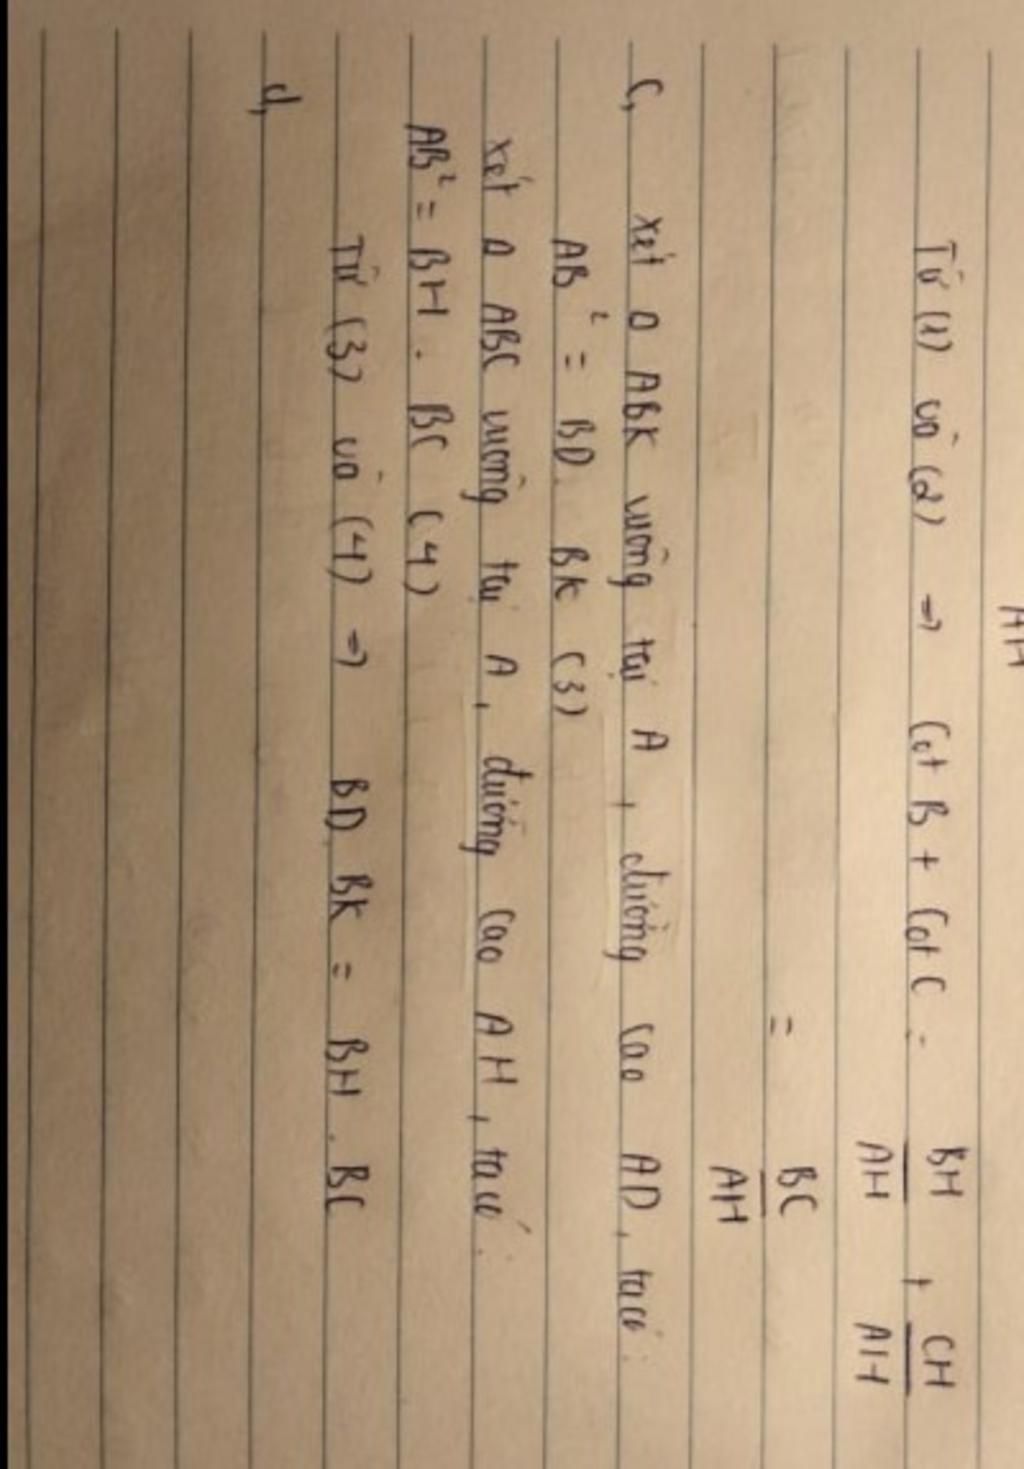 AH
Từ (1) và (2) => Cot B + Cot C = BH/AH + CH/AH
= BC/AH
c, xét Δ ABK vuông tại A, đường cao AD, ta có:
AB² = BD. BK (3)
xét Δ ABC vuông tại A, đường cao AH, ta có:
AB² = BH. BC (4)
Từ (3) và (4) => BD BK = BH. BC
d,